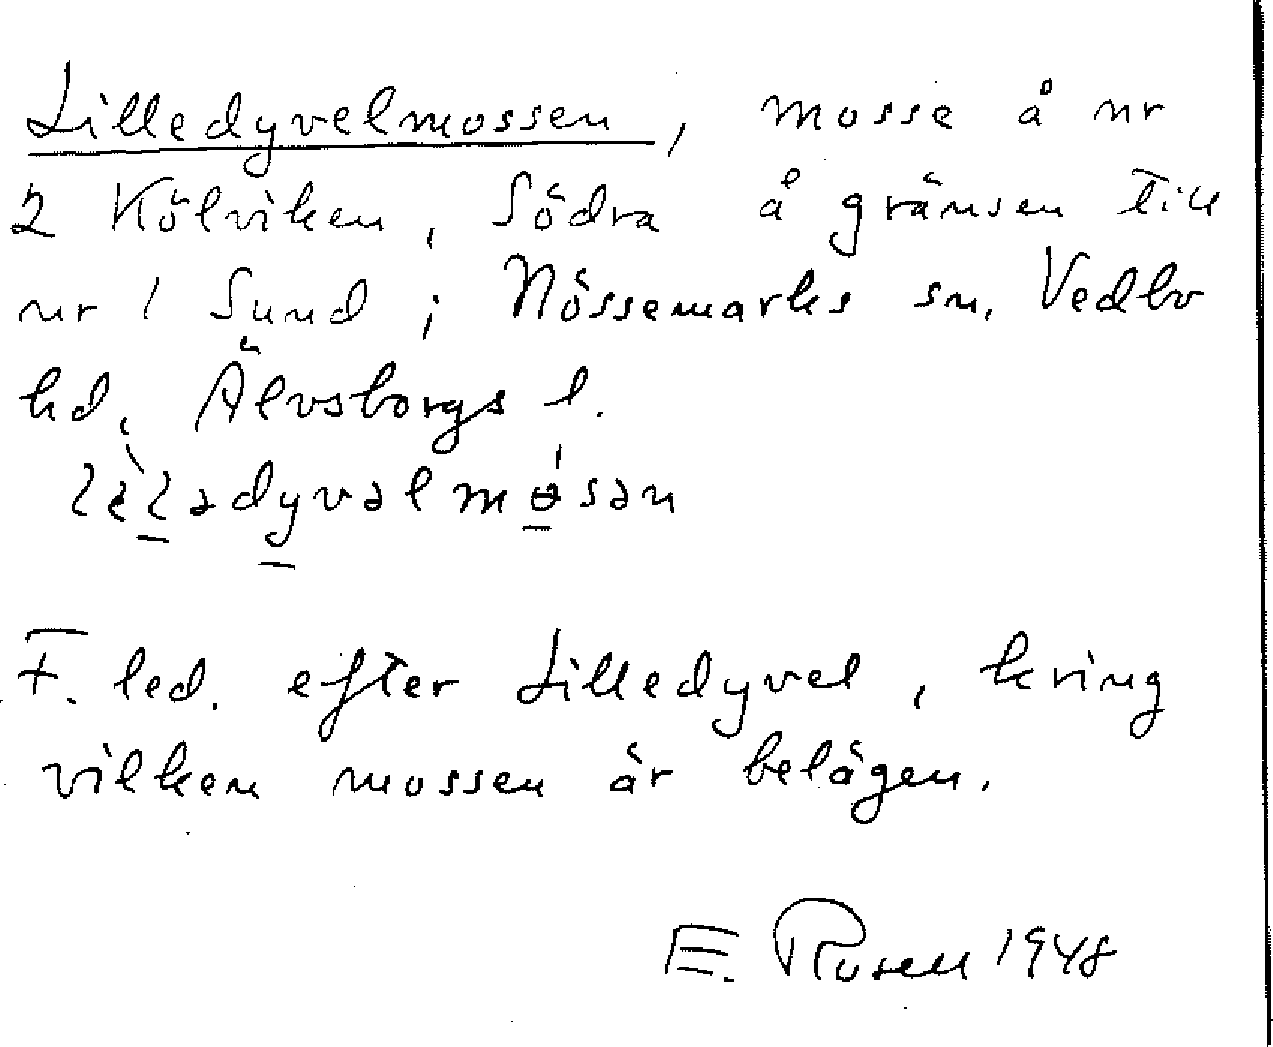 Lilledyvelmossen, mosse å nr
2 Kölviken, Södra å gränsen till
nr 1 Sund; Nössemarks sn, Vedbo
hd, Älvsborgs l.
F. led. efter Lilledyvel, kring
vilken mossen är belägen.
E. Rosell 1948